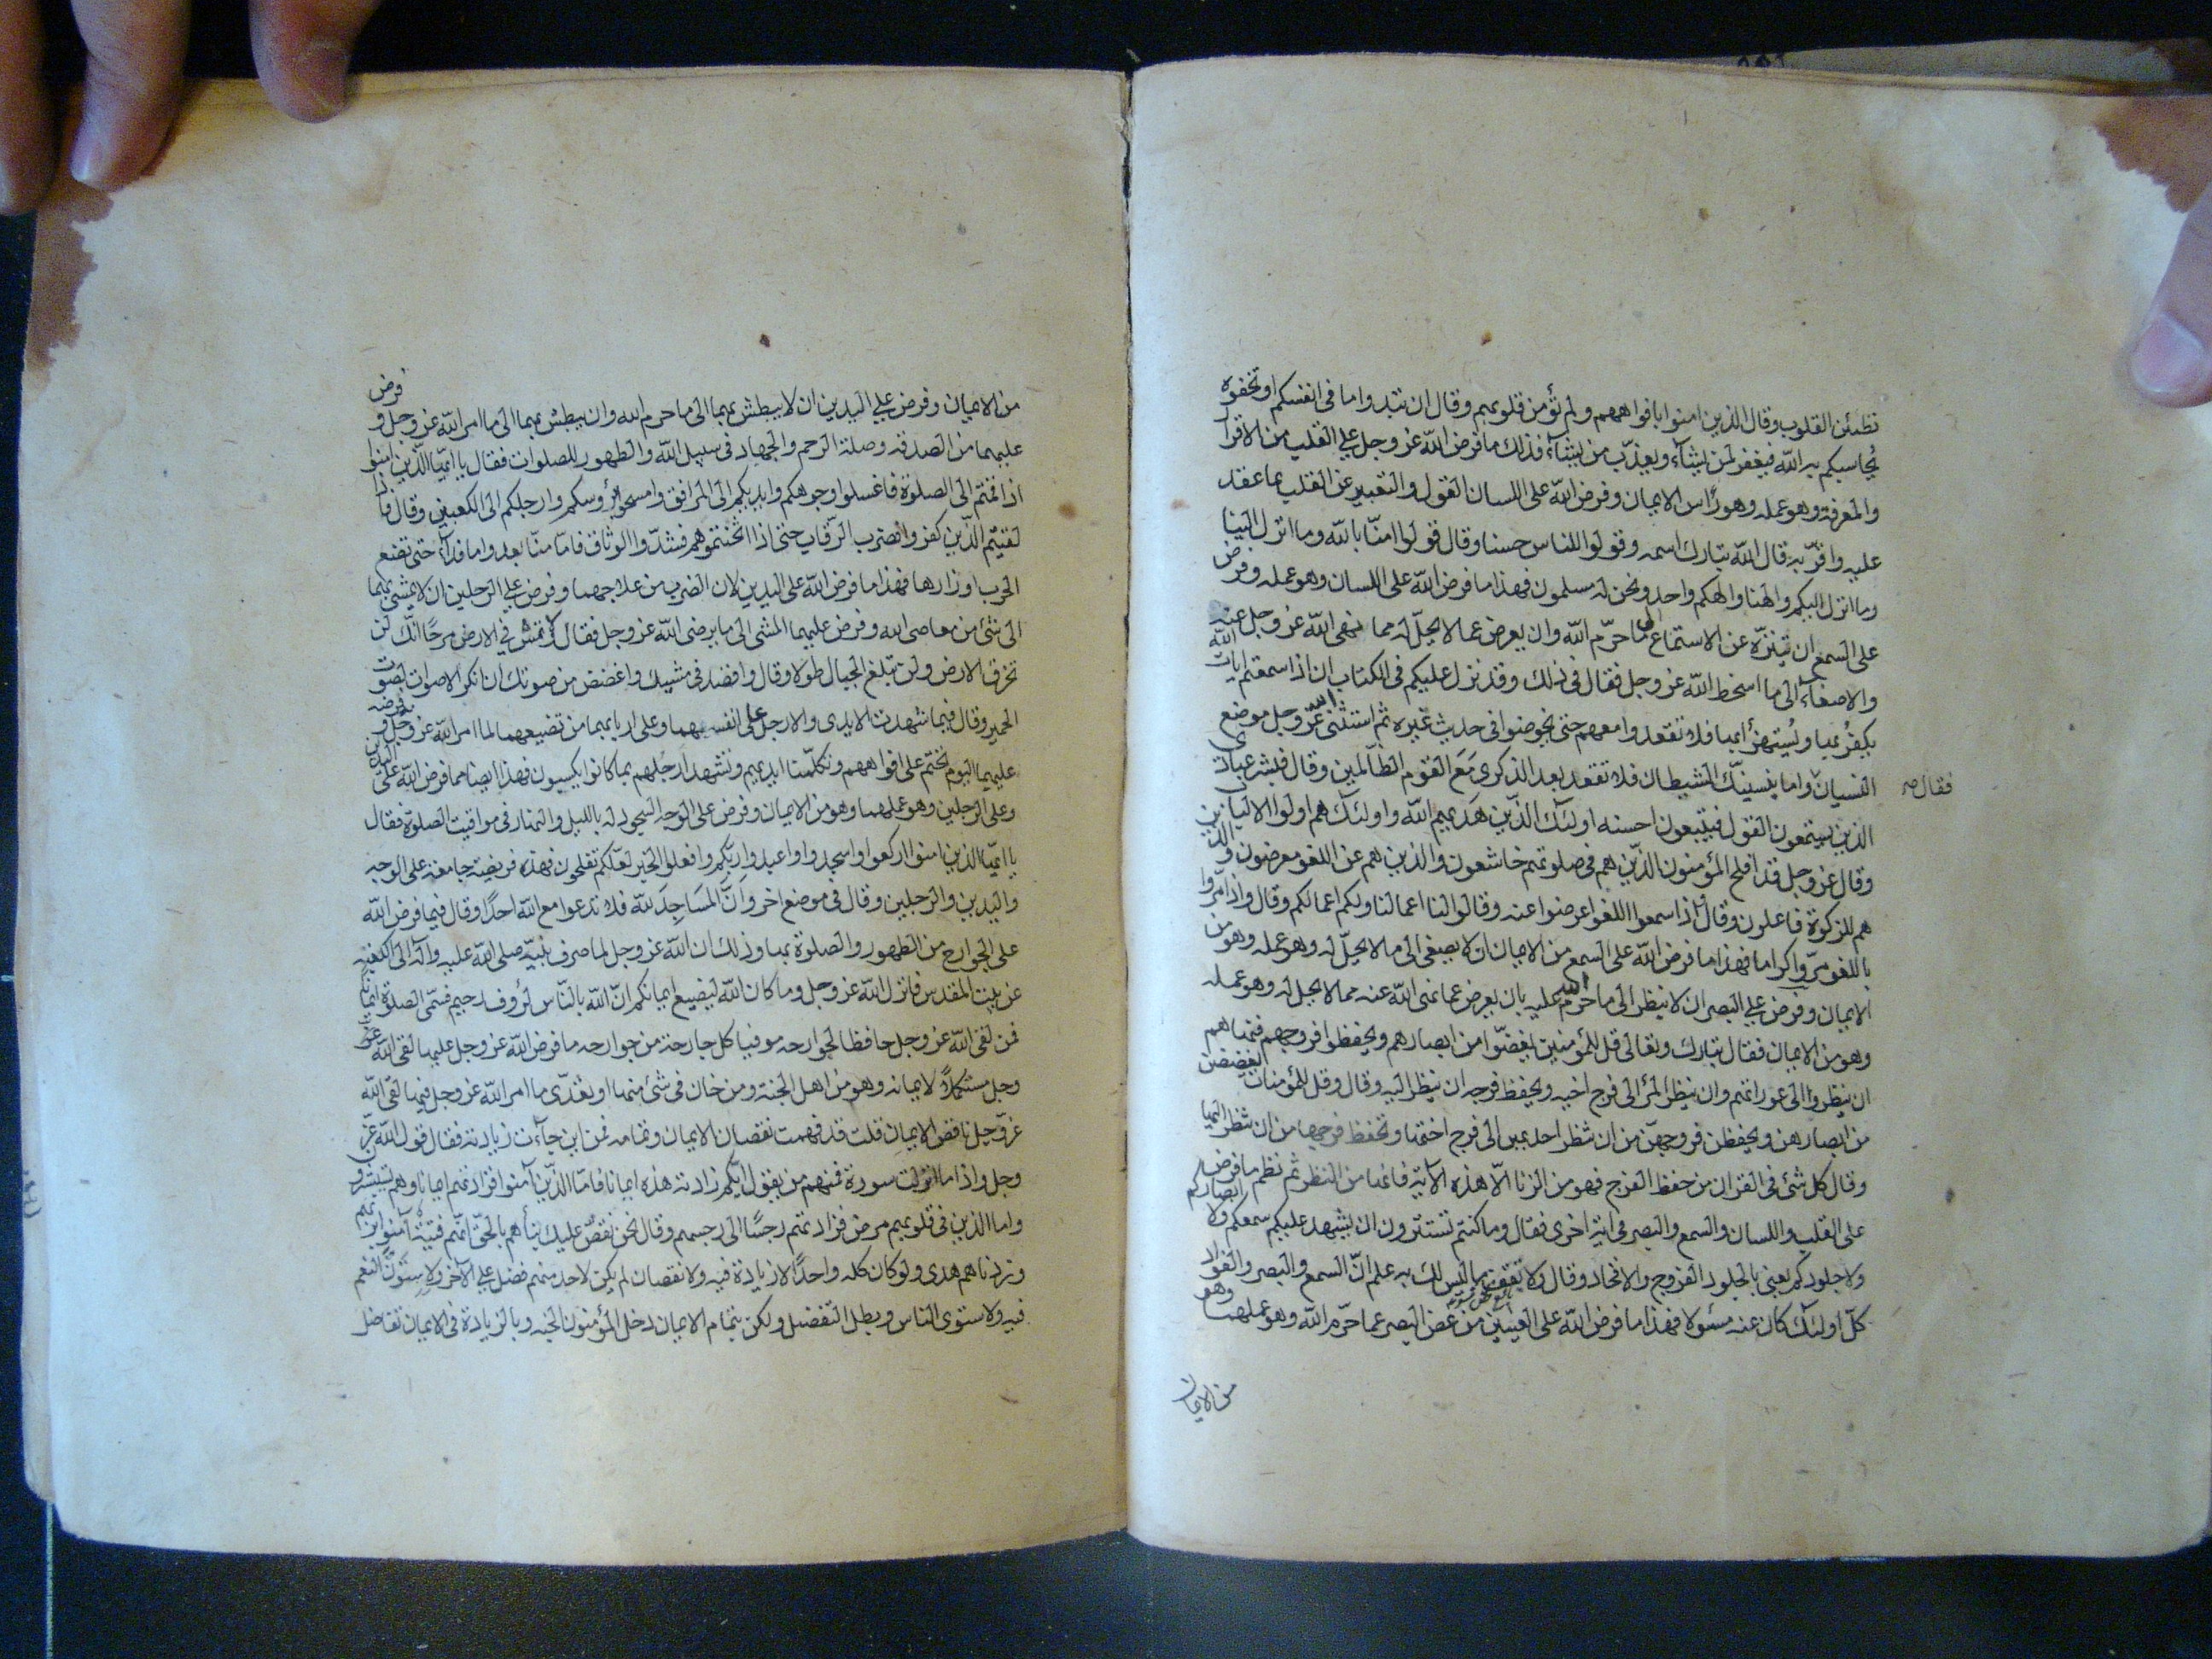 تطمئن القلوب وقال الذين امنوا بافواههم ولم تؤمن قلوبهم وقال ان تبدوا ما فى انفسكم او تخفوه
يُحاسبكم به اللّه فيغفر لمن يشآء ويعذّب من يشآء فذلك ما فرض اللّه عز وجل على القلب من الاقرار
والمعرفة وهو عمله وهو رأس الايمان وفرض اللّه على اللسان القول والتعبير عن القلب بما عقد
عليه واقرّ به قال اللّه تبارك اسمه وقولوا للناس حسنا وقال قولوا امنّا باللّه وما انزل الينا
وما انزل اليكم والهنا والهكم واحد ونحن له مسلمون فهذا ما فرض اللّه على اللسان وهو عمله وفرض
على السمع ان يتنزّه عن الاستماع الى ما حرّم اللّه وان يعرض عما لا يحلّ له مما نهى اللّه عز وجل عنه
والاصغآء الى ما اسخط اللّه عز وجل فقال فى ذلك وقد نزل عليكم فى الكتاب ان اذا سمعتم ايات اللّه
يكفرُ بها ويُستهزأ بها فلا تقعدوا معهم حتى يخوضوا فى حديث غيره ثم استثنى اللّه عزّ وجل موضع
النسيان واما ينسينّك الشيطان فلا تقعد بعد الذكرى مَعَ القوم الظّالمين وقال فبشر عبادى
فقال صح
الذين يستمعون القول فيتبعون احسنه اولئك الذّين هَديهم اللّه واولئك هم اولوا الالباب
وقال عز وجل قد افلح المؤمنون الذّين هم فى صلوتهم خاشعون والذين هم عن اللغو معرضون والذين
هم للزكوة فاعلون وقال اذا سمعوا اللغو اعرضوا عنه وقالوا لنا اعمالنا ولكم اعمالكم وقال واذا مرّوا
باللغو مرّوا كراما فهذا ما فرض اللّه على السمع من الايمان ان لا يصغى الى ما لا يحلّ له وهو عمله وهو من
الايمان وفرض على البصر ان لا ينظر الى ما حرّم اللّه عليه بان يعرض عما نهى اللّه عنه مما لا يحل له وهو عمله
وهو من الايمان فقال تبارك وتعالى قل للمؤمنين يغضّوا من ابصارهم ويحفظوا فروجهم فنهاهم
ان ينظروا الى عوراتهم وان ينظر المرء الى فرج اخيه ويحفظ فرجه ان ينظر اليه وقال وقل للمؤمنات يغضضن
من ابصارهن ويحفظن فروجهنّ من ان تنظر احديهن الى فرج اختها وتحفظ فرجها من ان تنظر اليها
وقال كل شئ فى القران من حفظ الفرج فهو من الزنا الاّ هذه الاية فانها من النظر ثم نظم ما فرض
على القلب واللسان والسمع والبصر فى اية اخرى فقال وما كنتم تستترون ان يشهد عليكم سمعكم ولا ابصاركم
ولا جلودكم يعنى بالجلود الفروج والافخاذ وقال ولا تقف ما ليس لك به علم انّ السمع والبصر والفؤاد
كلّ اولئك كان عنه مسئولا فهذا ما فرض اللّه على العينين من غض البصر عما حرّم اللّه وهو عملهما وهو
من الايمان
من الايمان وفرض على اليدين ان لا يبطش بهما الى ما حرم اللّه وان يبطش بهما الى ما امر اللّه عز وجل وفرض
عليهما من الصدقة وصلة الرحم والجهاد فى سبيل اللّه والطهور للصلوات فقال يا ايّها الّذين امنوا
اذا قمتم الى الصلوة فاغسلوا وجوهكم وايديكم الى المرافق وامسحوا برؤسكم وارجلكم الى الكعبين وقال فاذا
لقيتم الّذين كفروا فضرب الرّقاب حتى اذا اثخنتموهم فشدّوا الوثاق فامّا منّا بعد واما فدآءً حتى تضع
الحرب اوزارها فهذا ما فرض اللّه على اليدين لان الضرب من علاجهما وفرض على الرجلين ان لا يمشى بهما
الى شئ من معاصى اللّه وفرض عليهما المشى الى ما يرضى اللّه عز وجل فقال لا تمش فى الارض مرحًا انّك لن
تخرق الارض ولن تبلغ الجبال طولا وقال واقصد فى مشيك واغضض من صوتك ان انكر الاصوات لصوت
الحمير وقال فيما شهدت الايدى والارجل على انفسهما وعلى اربابهما من تضييعهما لما امر اللّه عز وجل وفرضه
عليهما اليوم نختم على افواههم وتكلّمنا ايديهم وتشهد ارجُلهم بما كانوا يكسبون فهذا ايضا مما فرض اللّه على اليدين
وعلى الرجلين وهو عملهما وهو من الايمان وفرض على الوجه السجود له بالليل والنهار فى مواقيت الصلوة فقال
يا ايّها الذين امنوا اركعوا واسجدوا واعبدوا ربّكم وافعلوا الخير لعلّكم تفلحون فهذه فريضة جامعة على الوجه
واليدين والرجلين وقال فى موضع اخر وانّ المسَاجِدَ للّه فلا تدعوا مع اللّه احدًا وقال فيما فرض اللّه
على الجوارح من الطهور والصلوة بها وذلك ان اللّه عز وجل لما صرف نبيّه صلى اللّه عليه وآله الى الكعبة
عن بيت المقدس فانزل اللّه عز وجل وما كان اللّه ليضيع ايمانكم انّ اللّه بالنّاس لرؤوف رحيم فسمّى الصلوة ايمانًا
فمن لقى اللّه عز وجل حافظا لجوارحه موفيا كل جارحة من جوارحه ما فرض اللّه عز وجل عليها لقى اللّه عز
وجل مستكملًا لايمانه وهو من اهل الجنة ومن خان فى شئ منها او تعدّى ما امر اللّه عز وجل فيها لقى اللّه
عزّ وجل ناقص الايمان قلت قد فهمت نقصان الايمان وتمامه فمن اين جآءت زيادته فقال قول اللّه عزّ
وجل واذا ما انزلت سورة فمنهم من يقول ايّكم زادته هذه ايمانا فامّا الذّين آمنوا فزادتهم ايمانا وهم يستبشرون
واما الذين فى قلوبهم مرض فزادتهم رجسًا الى رجسهم وقال نحن نقصّ عليك نبأهم بالحقّ انّهم فتية آمنوا بربهم
وزدناهم هدى ولو كان كله واحدًا لا زيادة فيه ولا نقصان لم يكن لاحد منهم فضل على الآخر ولاستوت النعم
فيه ولاستوى الناس وبطل التفضيل ولكن بتمام الايمان دخل المؤمنون الجنه وبالزيادة فى الايمان تفاضل